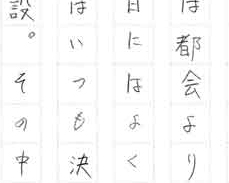 は都会より
日にはよく
はいつも決
設。その中